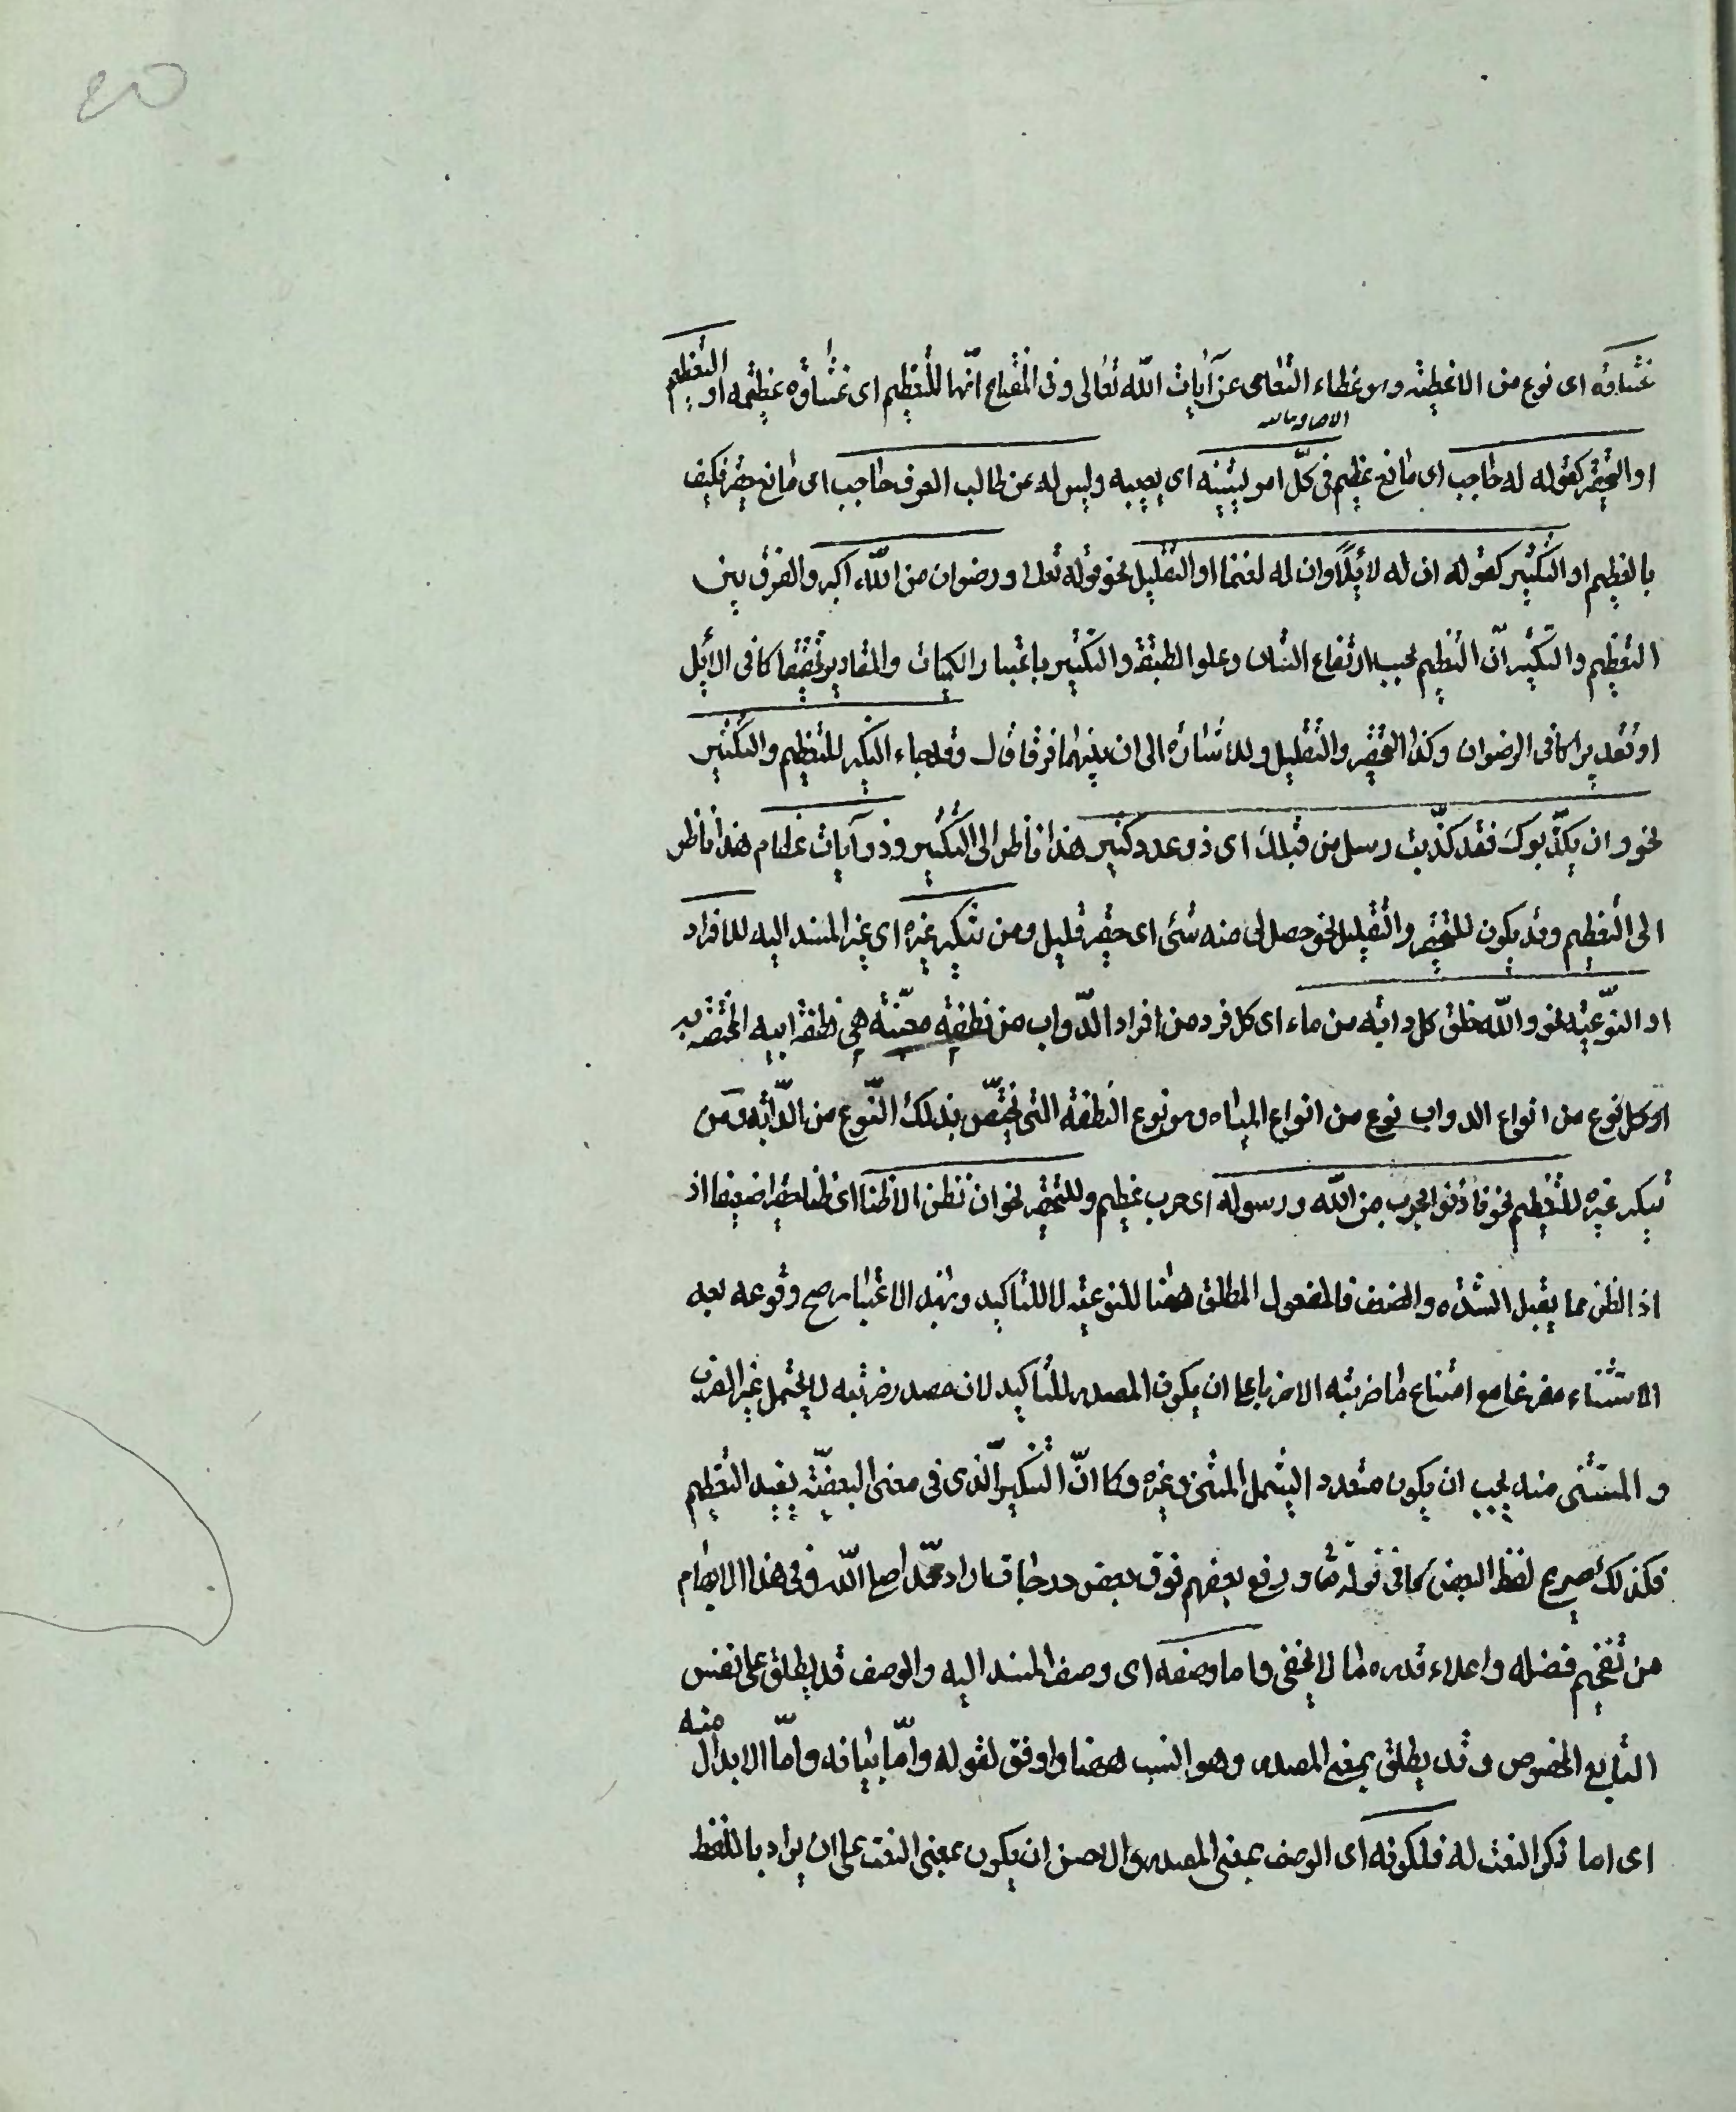 غشاوة اى نوع من الاغطية وهو غطاء التعامى عن آيات الله تعالى وفى المفتاح انّها للتعظيم اى غشاوة عظيمة او التعظيم
او التحقير كقوله له حاجب اى مانع عظيم فى كلّ امر يشينه اى يعيبه وليس له عن طالب العرف حاجب اى مانع حقير فكيف
بالعظيم او التكثير كقوله ان له لابلاً وان له لغنما او التقليل نحو قوله تعالى ورضوان من الله اكبر والفرق بين
التعظيم والتكثير انّ التعظيم بحسب ارتفاع الشان وعلو الطبقة والتكثير باعتبار الكميات والمقادير تحقيقا كما فى الابل
او تقديرا كما فى الرضوان وكذا التحقير والتقليل وللاشارة الى ان بينهما فرقا قال وقد جاء التنكير للتعظيم والتكثير
نحو وان يكذّبوك فقد كذّبت رسل من قبلك اى ذو عدد كثير هذا ناظر الى التكثير وذو آيات عظام هذا ناظر
الى التعظيم وقد يكون للتحقير والتقليل نحو حصل لى منه شئ اى حقير قليل ومن تنكير غيره اى غير المسند اليه للافراد
او النوعيّة نحو والله خلق كل دابة من ماء اى كل فرد من افراد الدّواب من نطفة معيّنة هى نطفة ابيه المختصة به
او كل نوع من انواع الدواب نوع من انواع المياه وهو نوع النطفة التى تختصّ بذلك النّوع من الدّابة ومن
تنكير غيره للتعظيم نحو فأذنوا بحرب من الله ورسوله اى حرب عظيم وللتحقير نحو ان نظن الا ظنا اى ظنا حقيرا ضعيفا اذ
اذ الظن مما يقبل الشدّة والضعف فالمفعول المطلق ههنا للنوعية لا للتاكيد وبهذا الاعتبار صح وقوعه بعد
الاستثناء مفرغا مع امتناع ما ضربته الا ضربا على ان يكون المصدر للتاكيد لان مصدر ضربته لا يحتمل غير الضرب
و المستثنى منه يجب ان يكون متعددا ليشمل المستثنى وغيره وكما انّ التنكير الّذى فى معنى البعضيّة يفيد التعظيم
فكذلك صريح لفظ البعض كما فى قوله تعا ورفع بعضهم فوق بعض درجات اراد محمّدا صلى الله ففى هذا الابهام
من تفخيم فضله واعلاء قدره ما لا يخفى واما وصفه اى وصف المسند اليه والوصف قد يطلق على نفس
التابع المخصوص وقد يطلق بمعنى المصدر وهو انسب ههنا واوفق لقوله وامّا بيانه وامّا الابدال منه
اى اما ذكر النعت له فلكونه اى الوصف بمعنى المصدر والاحسن ان يكون بمعنى النعت على ان يراد باللفظ